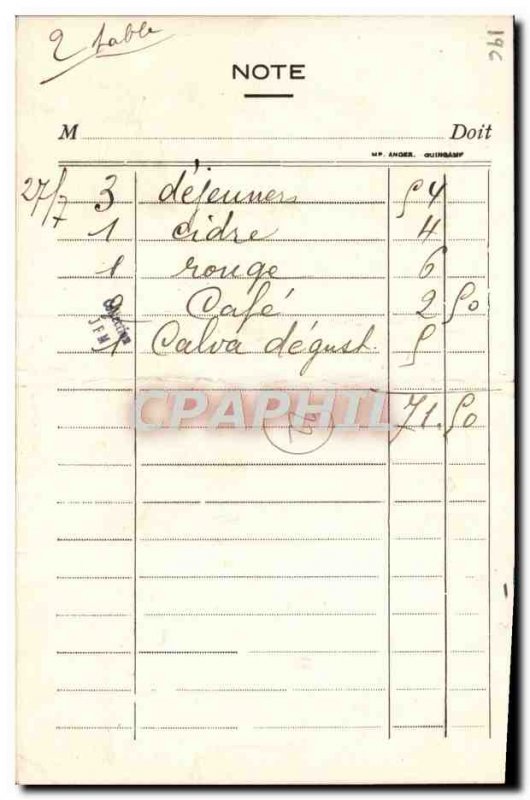 2 table
196
NOTE
M Doit
IMP. ANGER. GUINGAMP
27/7 3 déjeuners 54
1 cidre 4
1 rouge 6
2 Café 2 50
1 Calva dégust. 5
Collection
JFM
CPAPHIL
71. 50